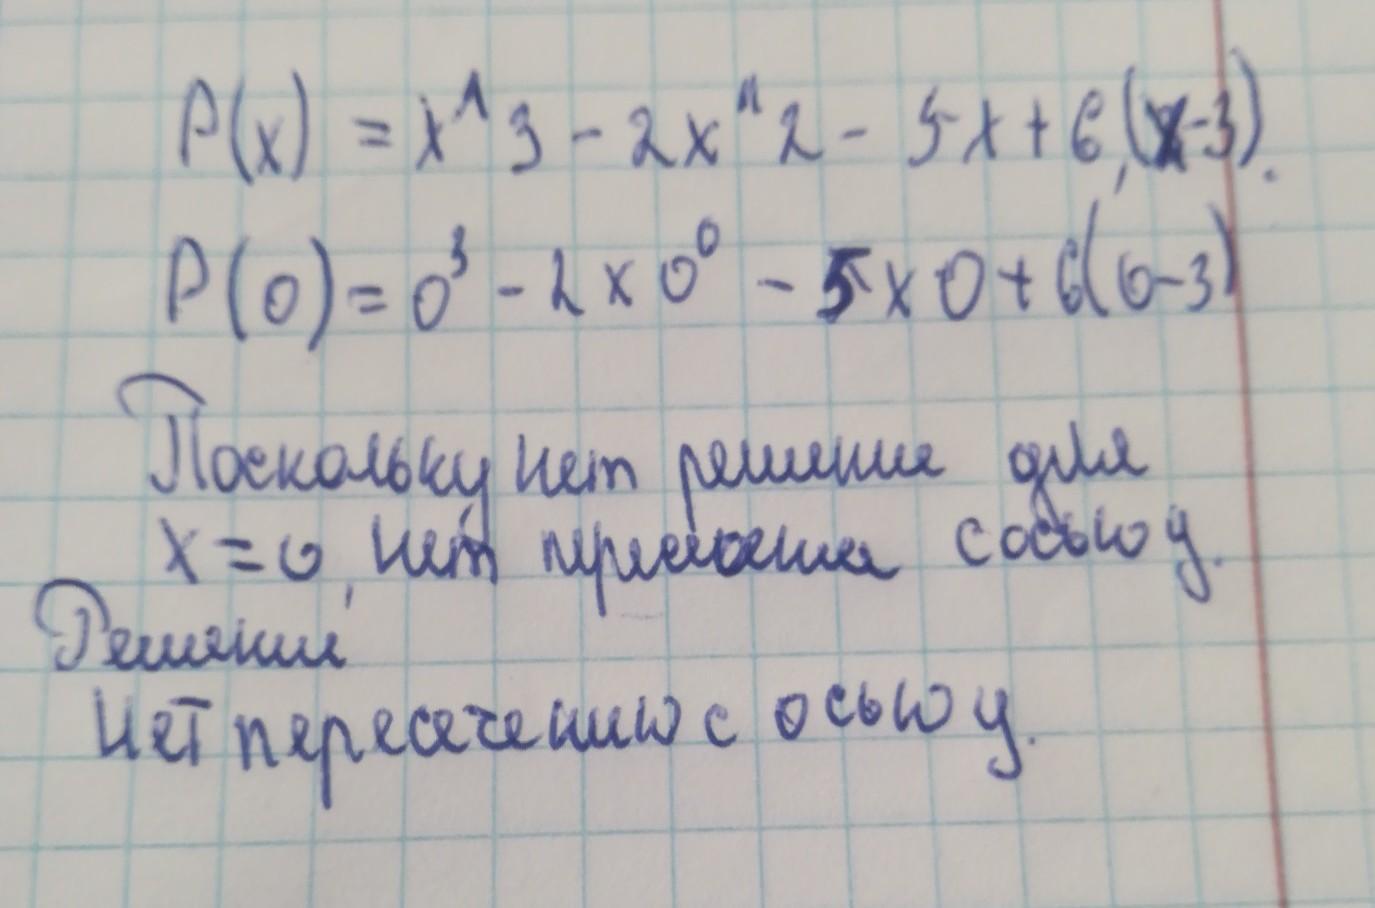 P(x) = x^3 - 2x^2 - 5x + 6, (x-3).
P(0) = 0³ - 2 x 0⁰ - 5 x 0 + 6(0-3)
Поскольку нет решение для
x = 0, нет пересечения с осью y.
Решении
Нет пересечению с осью y.